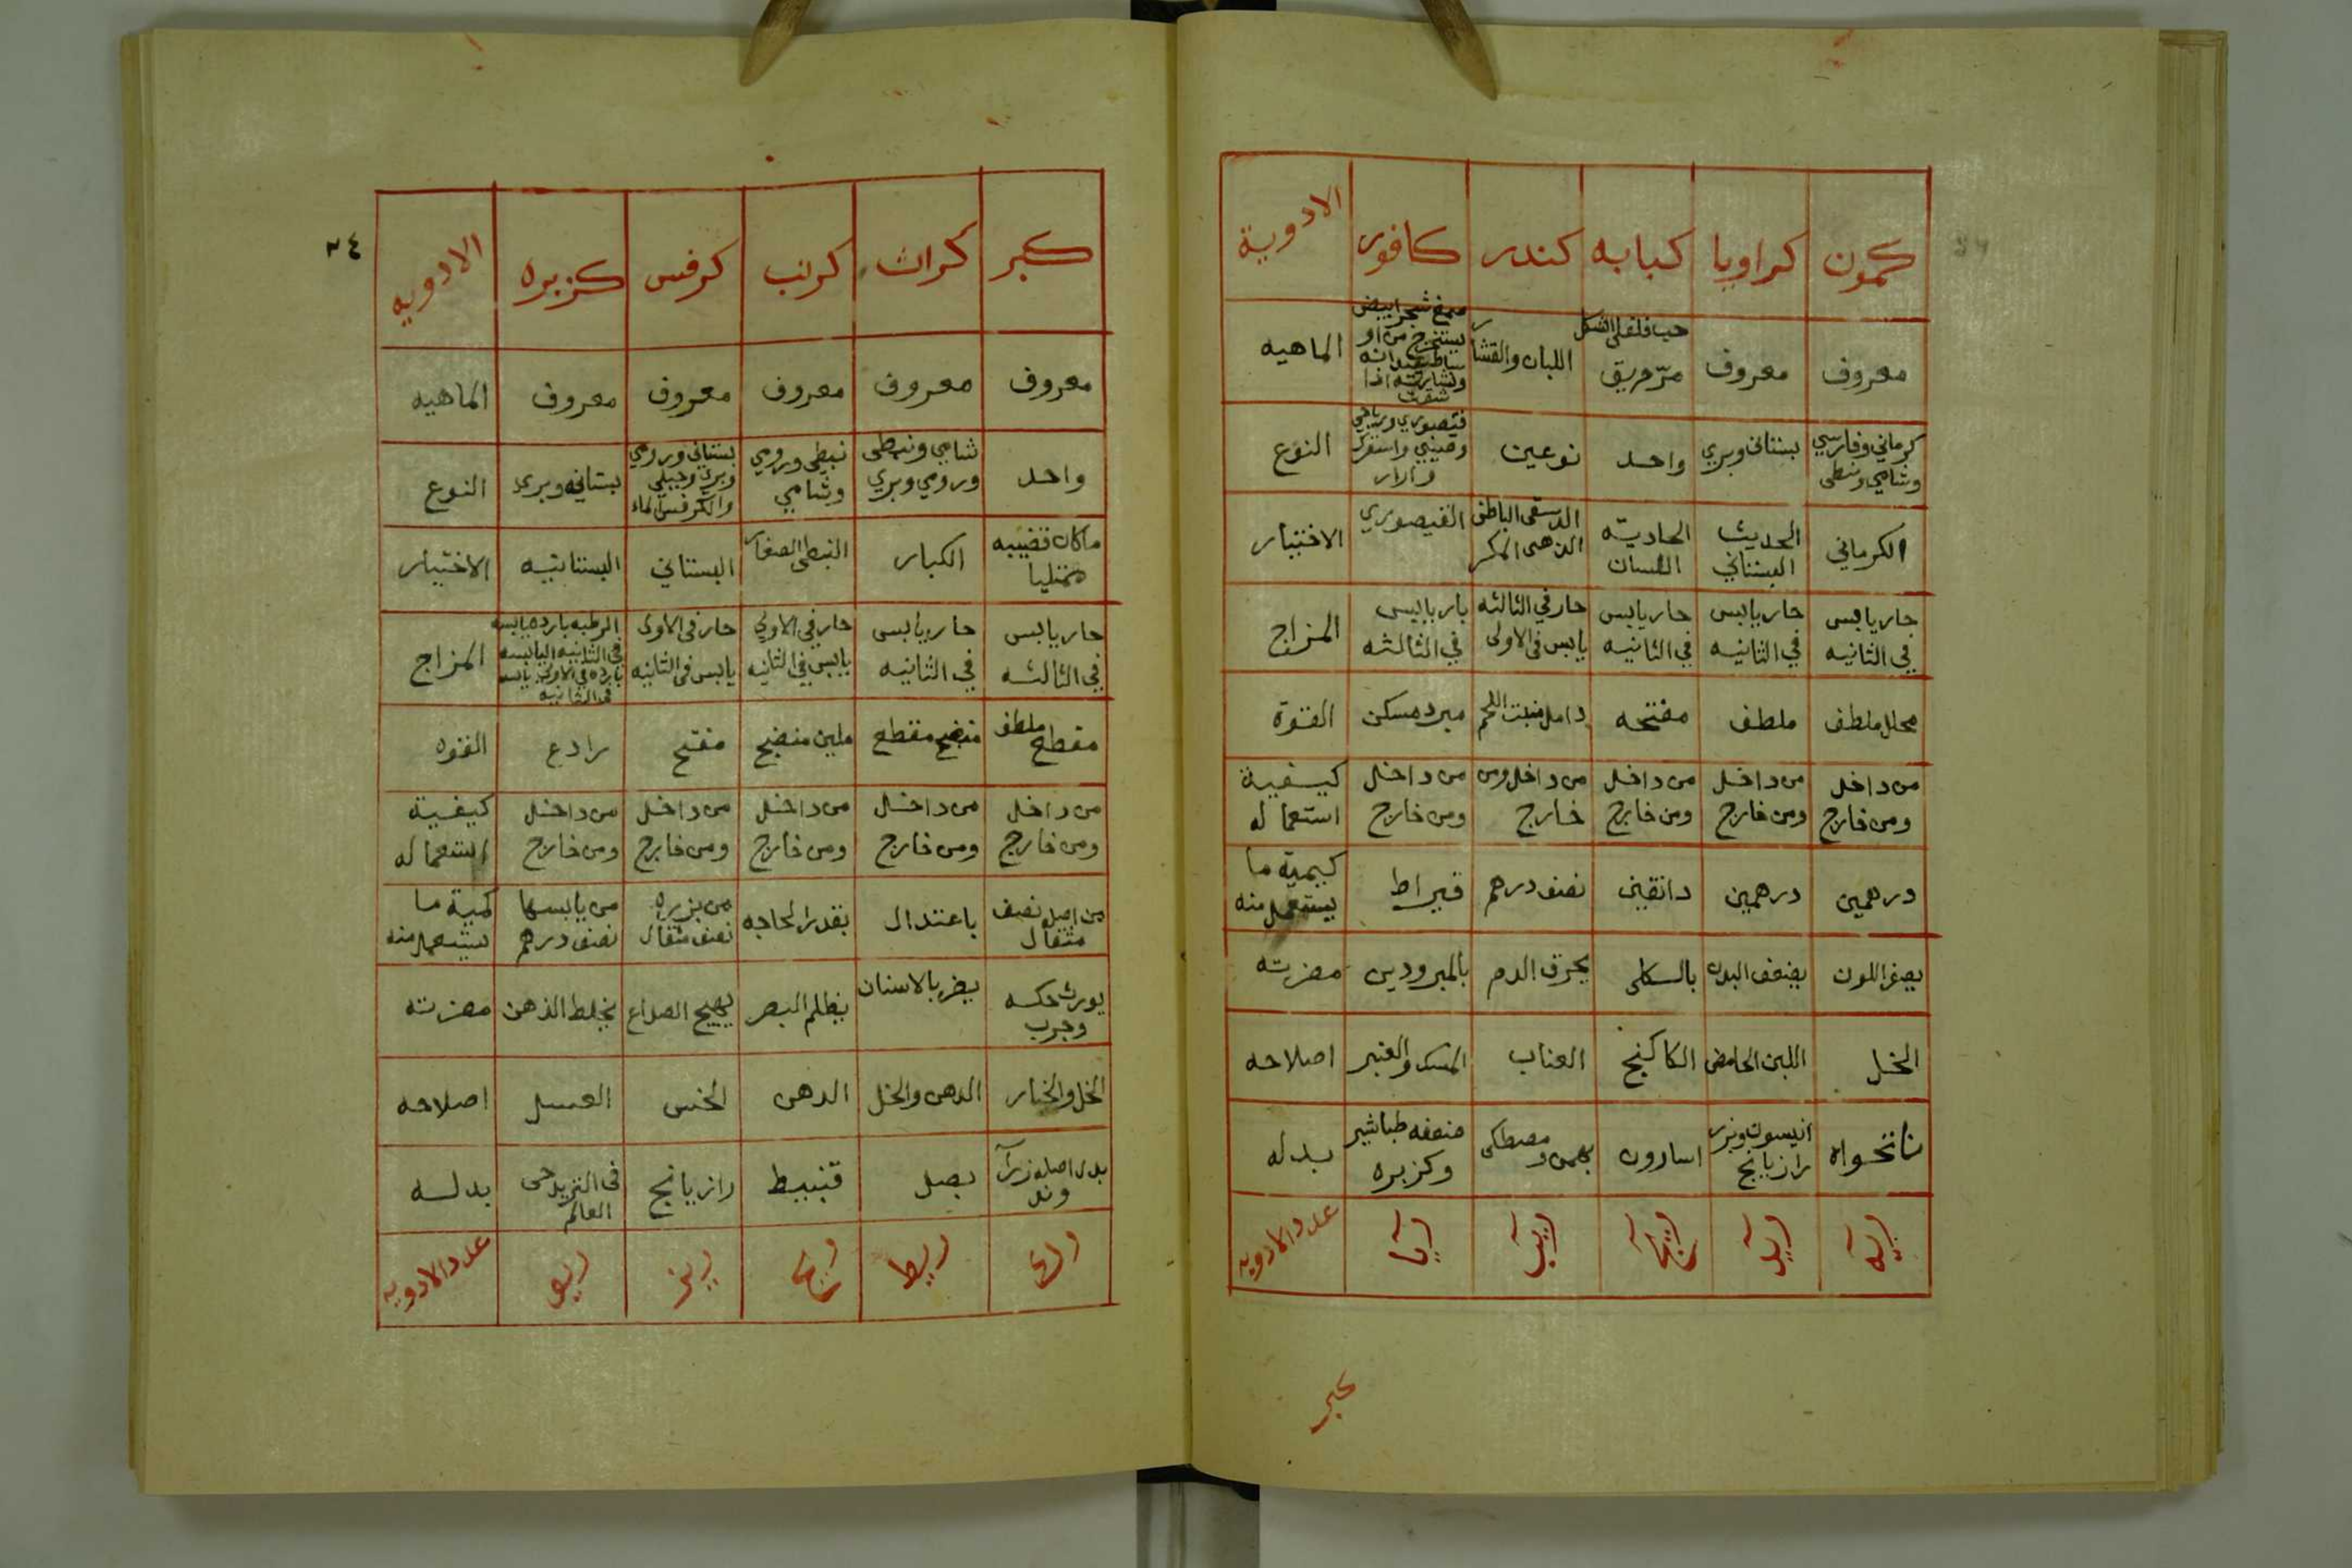 كمون كراويا كبابه كندر كافور الادوية
معروف معروف حب فلفلي الشكل مرّ حريق اللبان والقشار صمغ شجر ابيض الماهيه
كرماني وفارسي وشامي ونبطى بستاني وبري واحد نوعين قيصوري ورباحي النوع
الكرماني الحديث البستاني اللسان الذهبى القيصوري الاختيار
حار يابس في الثانيه حار يابس في الثانيه حار يابس في الثانيه حار في الثالثه يابس فى الاولى بارد يابس في الثالثه المزاج
محلل ملطف ملطف مفتحه دامل منبت اللحم مبرد مسكن القوة
من داخل ومن خارج من داخل ومن خارج من داخل ومن خارج من داخل ومن خارج من داخل ومن خارج كيفية استعماله
درهمين درهمين دانقين نصف درهم قيراط كيمية ما يستعمل منه
يصفر اللون يضعف البدن بالكلى يحرق الدم بالمبرودين مضرته
الخل اللبن الحامض الكاكنج العناب المسك والعنبر اصلاحه
نانخواه انيسون وبزر رازيانج اسارون بهمن ومصطكى ضعفه طباشير وكزبره بدله
عدد الادويه
كبر
٢٤
كبر كراث كرنب كرفس كزبره الادويه
معروف معروف معروف معروف معروف الماهيه
واحد شامي ونبطى ورومي وبري نبطى ورومي وشامي بستاني ورومي وبري وجبلي والكرفس الماء بستاني وبري النوع
ما كان قضيبه ممتليا الكبار النبطى الصغار البستاني البستانيه الاختيار
حار يابس في الثالثه حار يابس في الثانيه حار في الاولى يابس في الثانيه حار فى الاولى يابس فى الثانيه الرطبه بارده يابسه في الثانيه اليابسه بارده في الاولى يابسه في الثانيه المزاج
مقطع ملطف منضج مقطع ملين منضج مفتح رادع القوه
من داخل ومن خارج من داخل ومن خارج من داخل ومن خارج من داخل ومن خارج من داخل ومن خارج كيفية استعماله
من اصله نصف مثقال باعتدال بقدر الحاجه من بزره نصف مثقال من يابسها نصف درهم كمية ما يستعمل منه
يورث حكه وجرب يضر بالاسنان يظلم البصر يهيج الصداع يخلط الذهن مضرته
الخل والخيار الدهن والخل الدهن الخس العسل اصلاحه
بدل اصله زراوند بصل قنبيط رازيانج فى التبريد حى العالم بدله
ريط ريح ريز ريو عدد الادويه